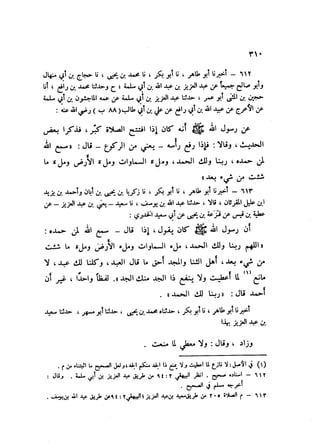 ٣١٠
٦١٢ – أخبرنا أبو طاهر ، نا أبو بكر ، نا محمد بن يحيى ، نا حجاج بن منهال
وأبو صالح جميعاً عن عبد العزيز بن عبد الله بن أبي سلمة ؛ ح وحدثنا محمد بن رافع ؛ نا
حجين بن المثنى أبو عمر ، حدثنا عبد العزيز بن أبي سلمة عن عمه الماجشون بن أبي سلمة
عن الأعرج عن عبد الله بن أبي رافع عن علي بن أبي طالب ( ٨٨ ب ) رضي الله عنه :
عن رسول الله ﷺ أنه كان إذا افتتح الصلاة كبّر ، فذكرا بعض
الحديث ، وقالا : فإذا رفع رأسه – يعني من الركوع – قال : «سمع الله
لمن حمده ، ربنا ولك الحمد ، ملء السماوات وملء الأرض وملء ما
شئت من شيء بعد»
٦١٣ – أخبرنا أبو طاهر ، نا أبو بكر ، نا زكريا بن يحيى بن أبان وأحمد بن يزيد
ابن عليل المقرئان ، قالا ، حدثنا عبد الله بن يوسف ، نا سعيد – يعني ابن عبد العزيز – عن
عطية بن قيس عن قزعة بن يحيى عن أبي سعيد الخدري :
أن رسول الله ﷺ كان يقول ، إذا قال – سمع الله لمن حمده :
«اللهم ربنا ولك الحمد ، ملء السماوات وملء الأرض وملء ما شئت
من شيء بعد ، أهل الثنا والمجد أحق ما قال العبد ، وكلنا لك عبد ، لا
مانع (١) لما أعطيت ولا ينفع ذا الجد منك الجد». لفظاً واحداً ، غير أن
أحمد قال : «ربنا لك الحمد» .
أخبرنا أبو طاهر ، نا أبو بكر ، نا محمد بن يحيى ، حدثنا أبو مسهر ، حدثنا سعيد
بن عبد العزيز بهذا
وزاد ، وقال : ولا معطي لما منعت .
٦١٢ – اسناده صحيح . انظر البيهقي ٢ : ٩٤ من طريق عبد العزيز بن أبي سلمة . وقال :
أخرجه مسلم في الصحيح .
٦١٣ – م الصلاة ٢٠٥ من طريق سعيد بن عبد العزيز ؛ البيهقي ٢ : ٩٤ من طريق عبد الله بن يوسف .